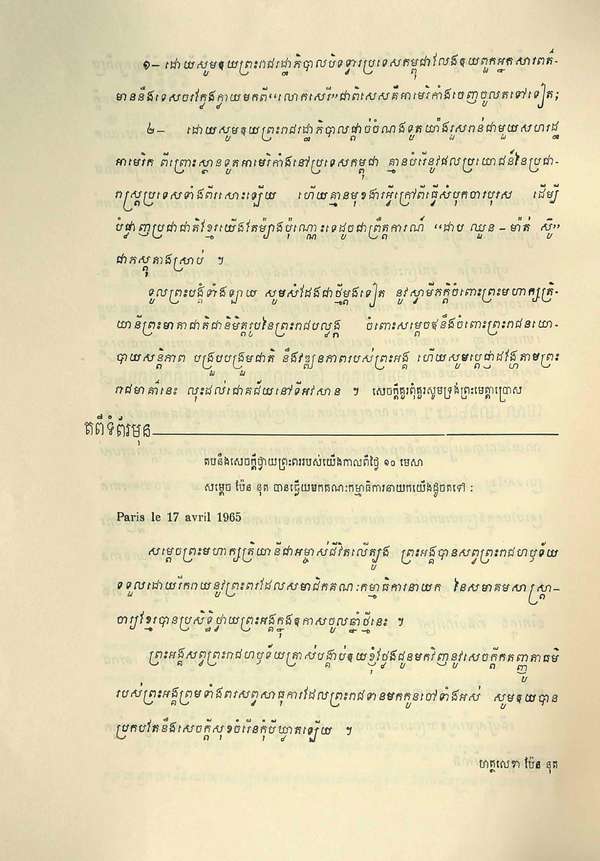 ១– ដោយសូមឲ្យព្រះរាជរដ្ឋាភិបាលបិទទ្វារប្រទេសកម្ពុជាលែងឲ្យពួកអ្នកសារពត៌–
មាននឹងទេសចរក្លែងក្លាយមកពី“លោកសេរី”ជាពិសេសគឺអាមេរិកាំងចេញចូលតទៅទៀត;
២– ដោយសូមឲ្យព្រះរាជរដ្ឋាភិបាលផ្តាច់ចំណងទូតយ៉ាងរួសរាន់ជាមួយសហរដ្ឋ
អាមេរិក ពីព្រោះស្ថានទូតអាមេរិកាំងនៅប្រទេសកម្ពុជា គ្មានបំរើនូវផលប្រយោជន៍នៃប្រជា–
រាស្ត្រប្រទេសទាំងពីរសោះឡើយ ហើយគ្មានមុខងារអ្វីក្រៅពីធ្វើសំបុកចារបុរស ដើម្បី
បំផ្លាញប្រជាជាតិខ្មែរយើងតែម្យ៉ាងប៉ុណ្ណោះទេដូចជាព្រឹត្តការណ៍ “ដាប ឈួន – ម៉ាត់ ស៊ី”
ជាភស្តុតាងស្រាប់ ។
ទូលព្រះបង្គំទាំងឡាយ សូមសំដែងជាថ្មីម្តងទៀត នូវស្វាមីភក្តិចំពោះព្រះមហាក្សត្រិ–
យានីព្រះមាតាជាតិជានិមិត្តរូបនៃព្រះរាជបល្ល័ង្ក ចំពោះសម្តេចឪនឹងចំពោះព្រះរាជនយោ–
បាយសន្តិភាព បង្រួបបង្រួមជាតិ នឹងវឌ្ឍនភាពរបស់ព្រះអង្គ ហើយសូមប្តេជ្ញាដង្ហែតាមព្រះ
រាជមាគ៌ានេះ លុះដល់ជោគជ័យនៅទីអវសាន ។ សេចក្តីគួរពុំគួរសូមទ្រង់ព្រះមេត្តាប្រោស
តពីទំព័រមុន
តបនឹងសេចក្តីថ្វាយព្រះពររបស់យើងកាលពីថ្ងៃ ១០ មេសា
សម្តេច ប៉ែន នុត បានឆ្លើយមកគណៈកម្មាធិការនាយកយើងដូចតទៅ :
Paris le 17 avril 1965
សម្តេចព្រះមហាក្សត្រិយានីជាអម្ចាស់ជីវិតលើត្បូង ព្រះអង្គបានសព្វព្រះរាជហឫទ័យ
ទទួលដោយរីករាយនូវព្រះពរដែលសមាជិកគណៈកម្មាធិការនាយក នៃសមាគមសាស្ត្រា–
ចារ្យខ្មែរបានប្រសិទ្ធិថ្វាយព្រះអង្គក្នុងឱកាសចូលឆ្នាំថ្មីនេះ ។
ព្រះអង្គសព្វព្រះរាជហឫទ័យត្រាស់បង្គាប់ឲ្យខ្ញុំថ្លែងជូនមកវិញនូវសេចក្តីកតញ្ញូតាធម៌
របស់ព្រះអង្គព្រមទាំងពរសព្ទសាធុការដែលព្រះរាជទានមកកូនចៅទាំងអស់ សូមឲ្យបាន
ប្រកបតែនឹងសេចក្តីសុខចំរើនកុំបីឃ្លាតឡើយ ។
ហត្ថលេខា ប៉ែន នុត